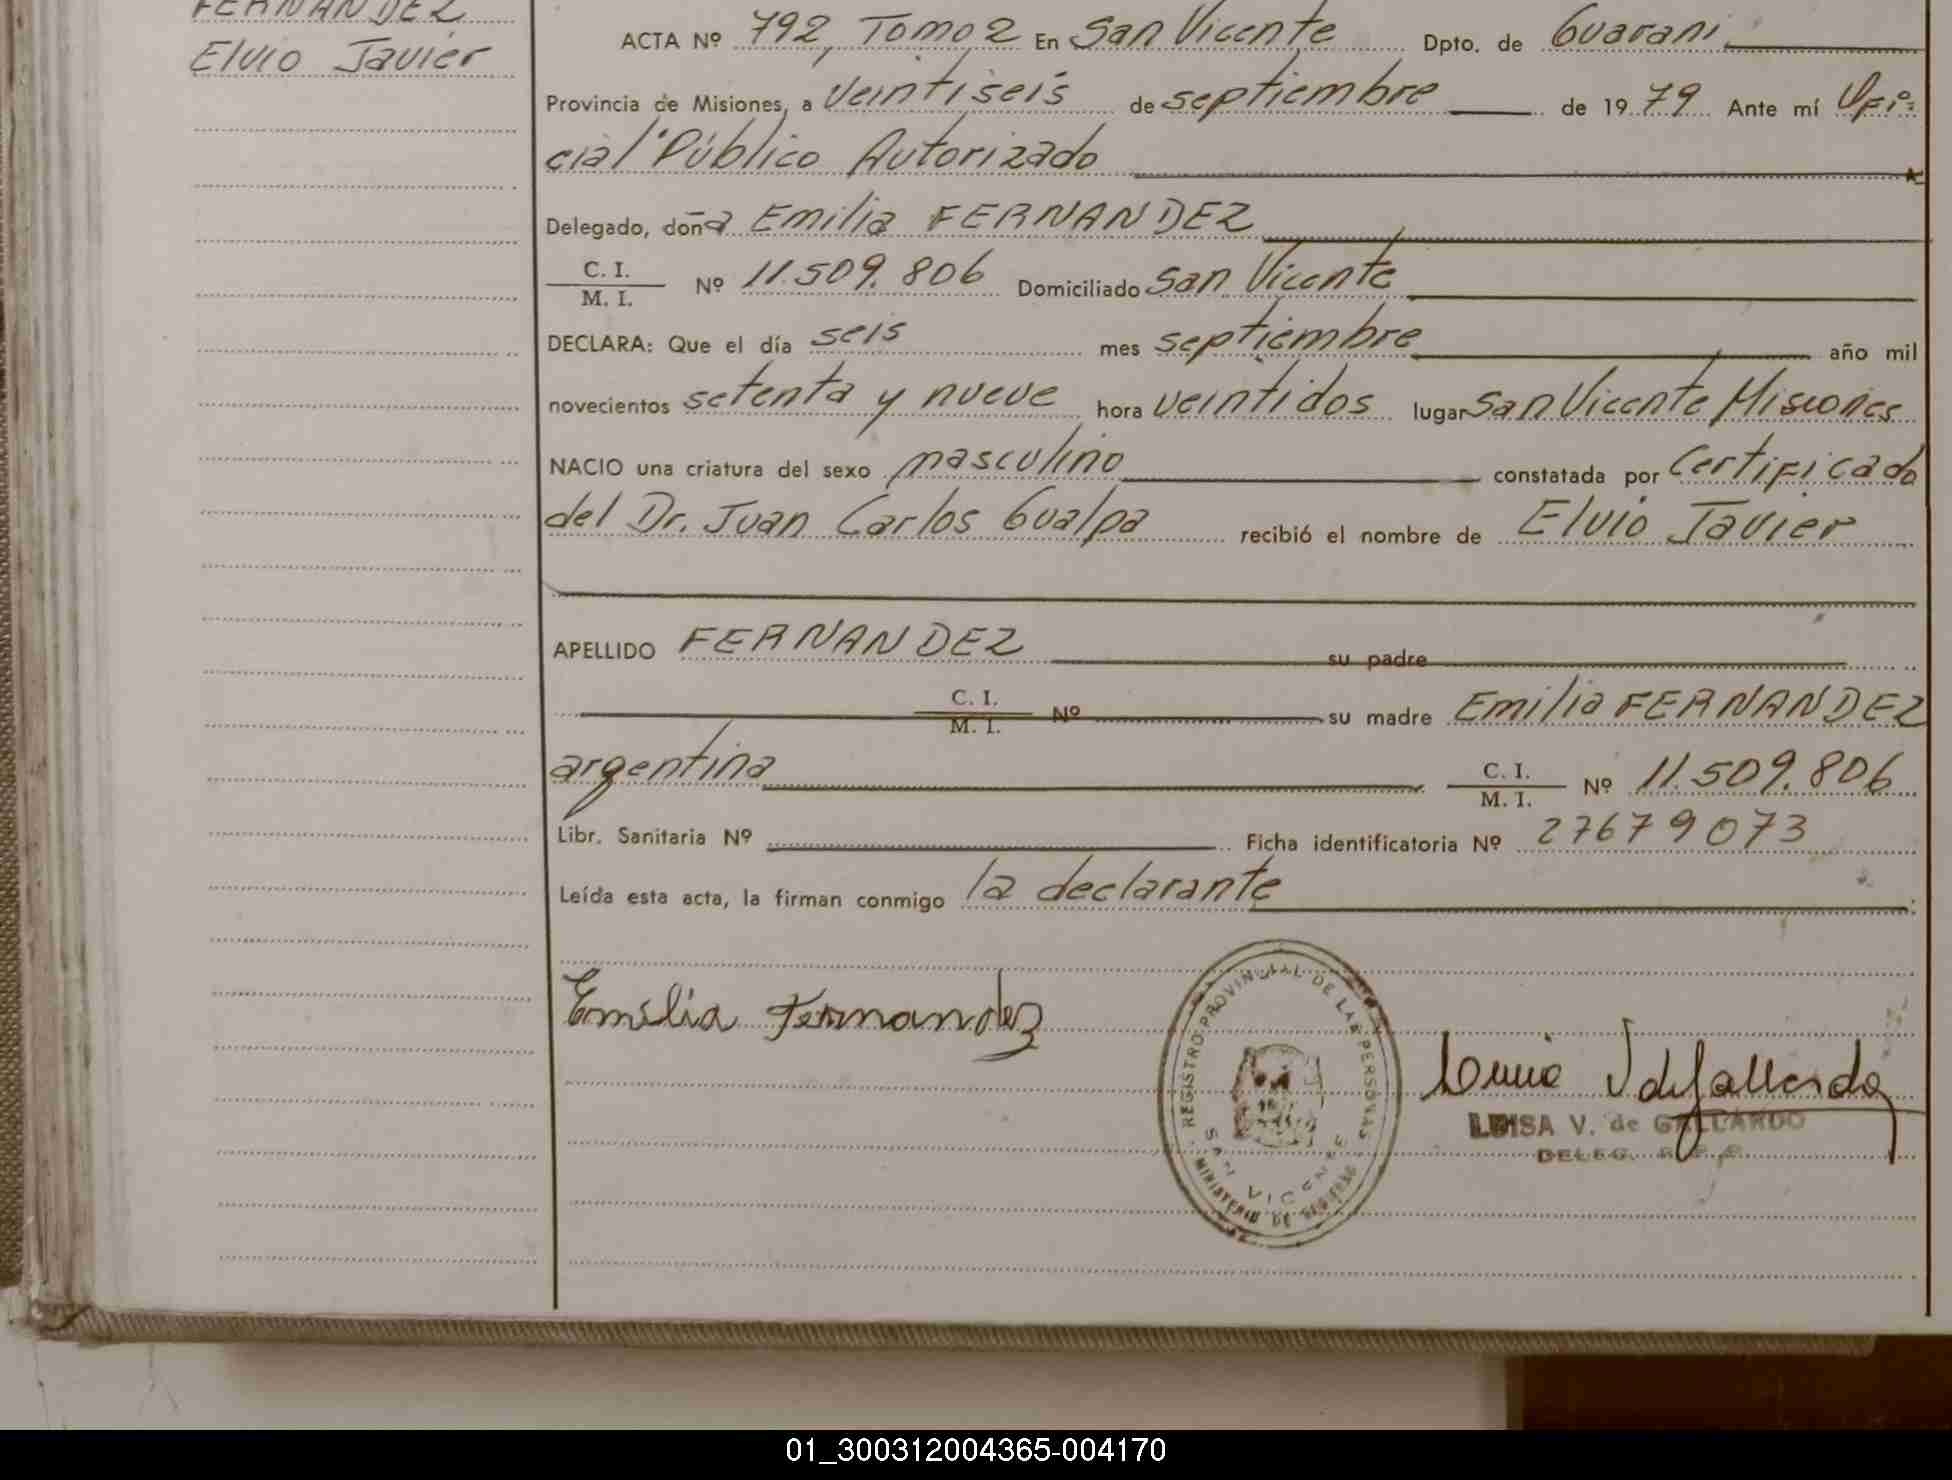 FERNANDEZ
Elvio Javier
ACTA Nº 792, Tomo 2 En San Vicente Dpto. de Guarani
Provincia de Misiones, a veintiseis de septiembre de 1979 Ante mí Ofi=
cial Público Autorizado
Delegado, doña Emilia FERNANDEZ
C. I.
M. I. Nº 11.509.806 Domiciliado San Vicente
DECLARA: Que el día seis mes septiembre año mil
novecientos setenta y nueve hora veintidos lugar San Vicente Misiones
NACIO una criatura del sexo masculino constatada por Certificado
del Dr. Juan Carlos Gualpa recibió el nombre de Elvio Javier
APELLIDO FERNANDEZ su padre
C. I.
M. I. Nº su madre Emilia FERNANDEZ
argentina C. I.
M. I. Nº 11.509.806
Libr. Sanitaria Nº Ficha identificatoria Nº 27679073
Leída esta acta, la firman conmigo la declarante
Emilia Fernandez
REGISTRO PROVINCIAL DE LAS PERSONAS
SAN VICENTE
MINISTERIO DE GOBIERNO
LUISA V. de GALLARDO
DELEG. R. P. P.
01_300312004365-004170